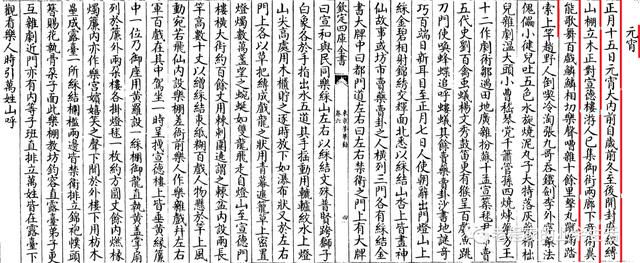 元宵
正月十五日元宵大内前自歲前冬至後開封府絞縛
山棚立木正對宣德樓游人已集御街兩廊下奇術異
能歌舞百戲鱗鱗相切樂聲嘈雜十餘里擊丸蹴踘踏
索上竿趙野人倒喫冷淘張九哥吞鐵劍李外寧藥法
傀儡小健兒吐五色水旋燒泥丸子大特落灰藥榾柮
兒雜劇溫大頭小曹嵇琴党千簫管孫四燒煉藥方王
十二作劇術鄒遇田地廣雜扮蘇十孟宣築毬尹常賣
五代史劉百禽蟲蟻楊文秀鼓笛更有猴呈百戲魚跳
刀門使喚蜂蝶追呼螻蟻其餘賣藥賣卦沙書地謎奇
巧百端日新耳目至正月七日人使朝辭出門燈山上
綵金碧相射錦繡交輝面北悉以綵結山沓上皆畫神
仙故事或坊市賣藥賣卦之人橫列三門各有綵結金
書大牌中曰都門道左右曰左右禁衛之門上有大牌
欽定四庫全書
東京夢華錄
卷六
曰宣和與民同樂綵山左右以綵結文殊普賢跨獅子
白象各於手指出水五道其手搖動用轆轤絞水上燈
山尖高處用木櫃貯之逐時放下如瀑布狀又於左右
門上各以草把縛成戲龍之狀用青幕遮籠草上密置
燈燭數萬盞望之蜿蜒如雙龍飛走自燈山至宣德門
樓橫大街約百餘丈用棘刺圍遶謂之棘盆内設兩長
竿高數十丈以繒綵結束紙糊百戲人物懸於竿上風
動宛若飛仙内設樂棚差衙前樂人作樂雜戲并左右
軍百戲在其中駕坐一時呈拽宣德樓上皆垂黃緣簾
中一位乃御座用黃羅設一綵棚御龍直執黃蓋掌扇
列於簾外兩朶樓各掛燈毬一枚約方圓丈餘内燃椽
燭簾内亦作樂宮嬪嬉笑之聲下聞於外樓下用枋木
壘成露臺一所綵結欄檻兩邊皆禁衛排立錦袍幞頭
簪賜花執骨朶子面此樂棚教坊鈞容直露臺弟子更
互雜劇近門亦有内等子班直排立萬姓皆在露臺下
觀看樂人時引萬姓山呼